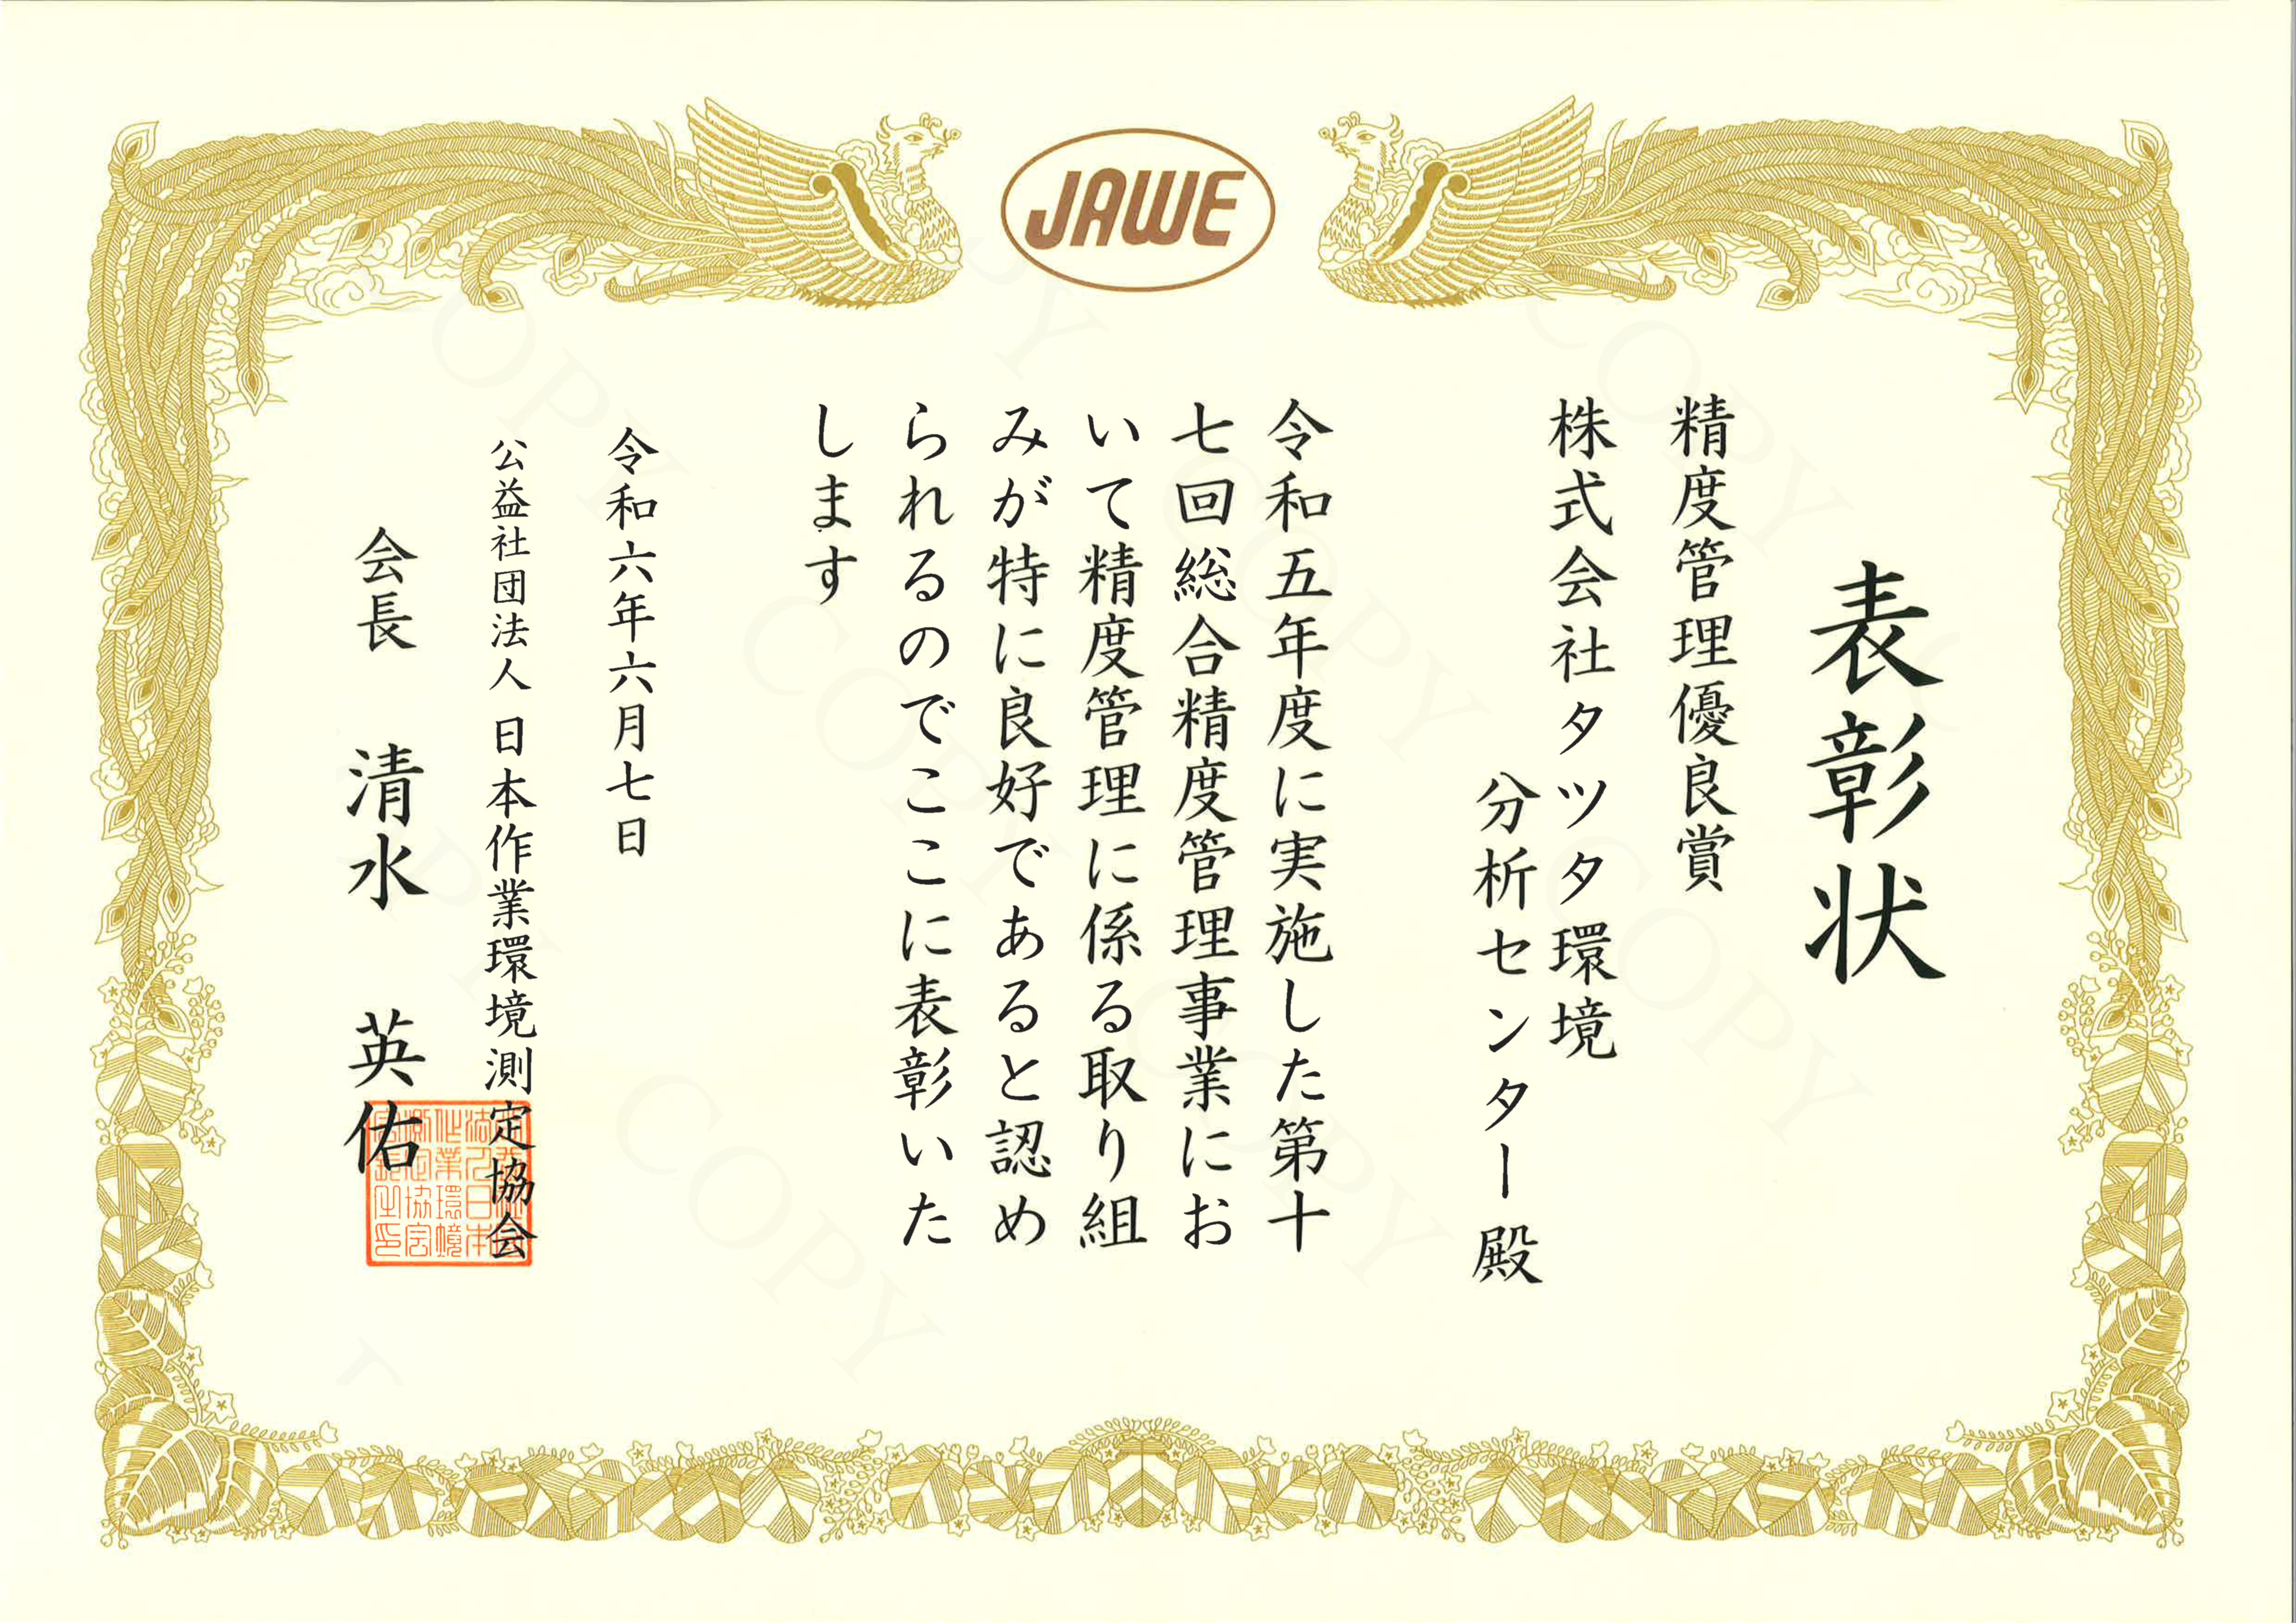 JAWE
表彰状
精度管理優良賞
株式会社タツタ環境
分析センター殿
令和五年度に実施した第十
七回総合精度管理事業にお
いて精度管理に係る取り組
みが特に良好であると認め
られるのでここに表彰いた
します
令和六年六月七日
公益社団法人 日本作業環境測定協会
会長 清水 英佑
COPY
COPY
COPY
COPY
COPY
COPY
COPY
COPY